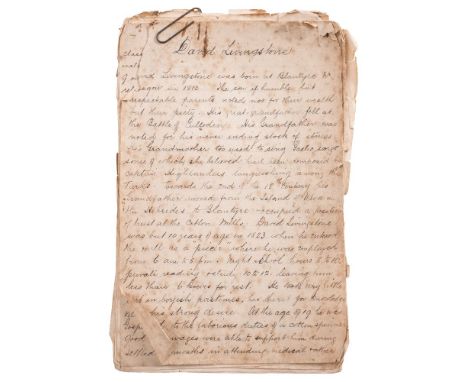 David Livingstone
David Livingstone was born at Blantyre Nr
in 1813. The son of humble but
respectable parents noted not for their wealth
but their piety. His great grandfather fell at
the Battle of Culloden. His Grandfather was
noted for his never ending stock of stories
His Grandmother too used to sing Gaelic songs
some of which she believed had been composed by
captive Highlanders languishing among the
Turks. Towards the end of the 18th Century his
Grandfather moved from the Island of
the Hebrides to Blantyre occupied a position
of trust at the Cotton Mills. David Livingstone
was but 10 years of age in 1823 when he entered
the mill as a "piecer" where he was employed
from 6 am to 8 p.m. Night School hours 8 to 10
private reading outside 10 to 12. leaving him
less than 6 hours for rest. He took very little
in boyish pastimes, his desire for knowledge
his strong desire. At the age of 19 he was
to the laborious duties of a cotton spinner
Good wages were able to support him during
months in attending medical